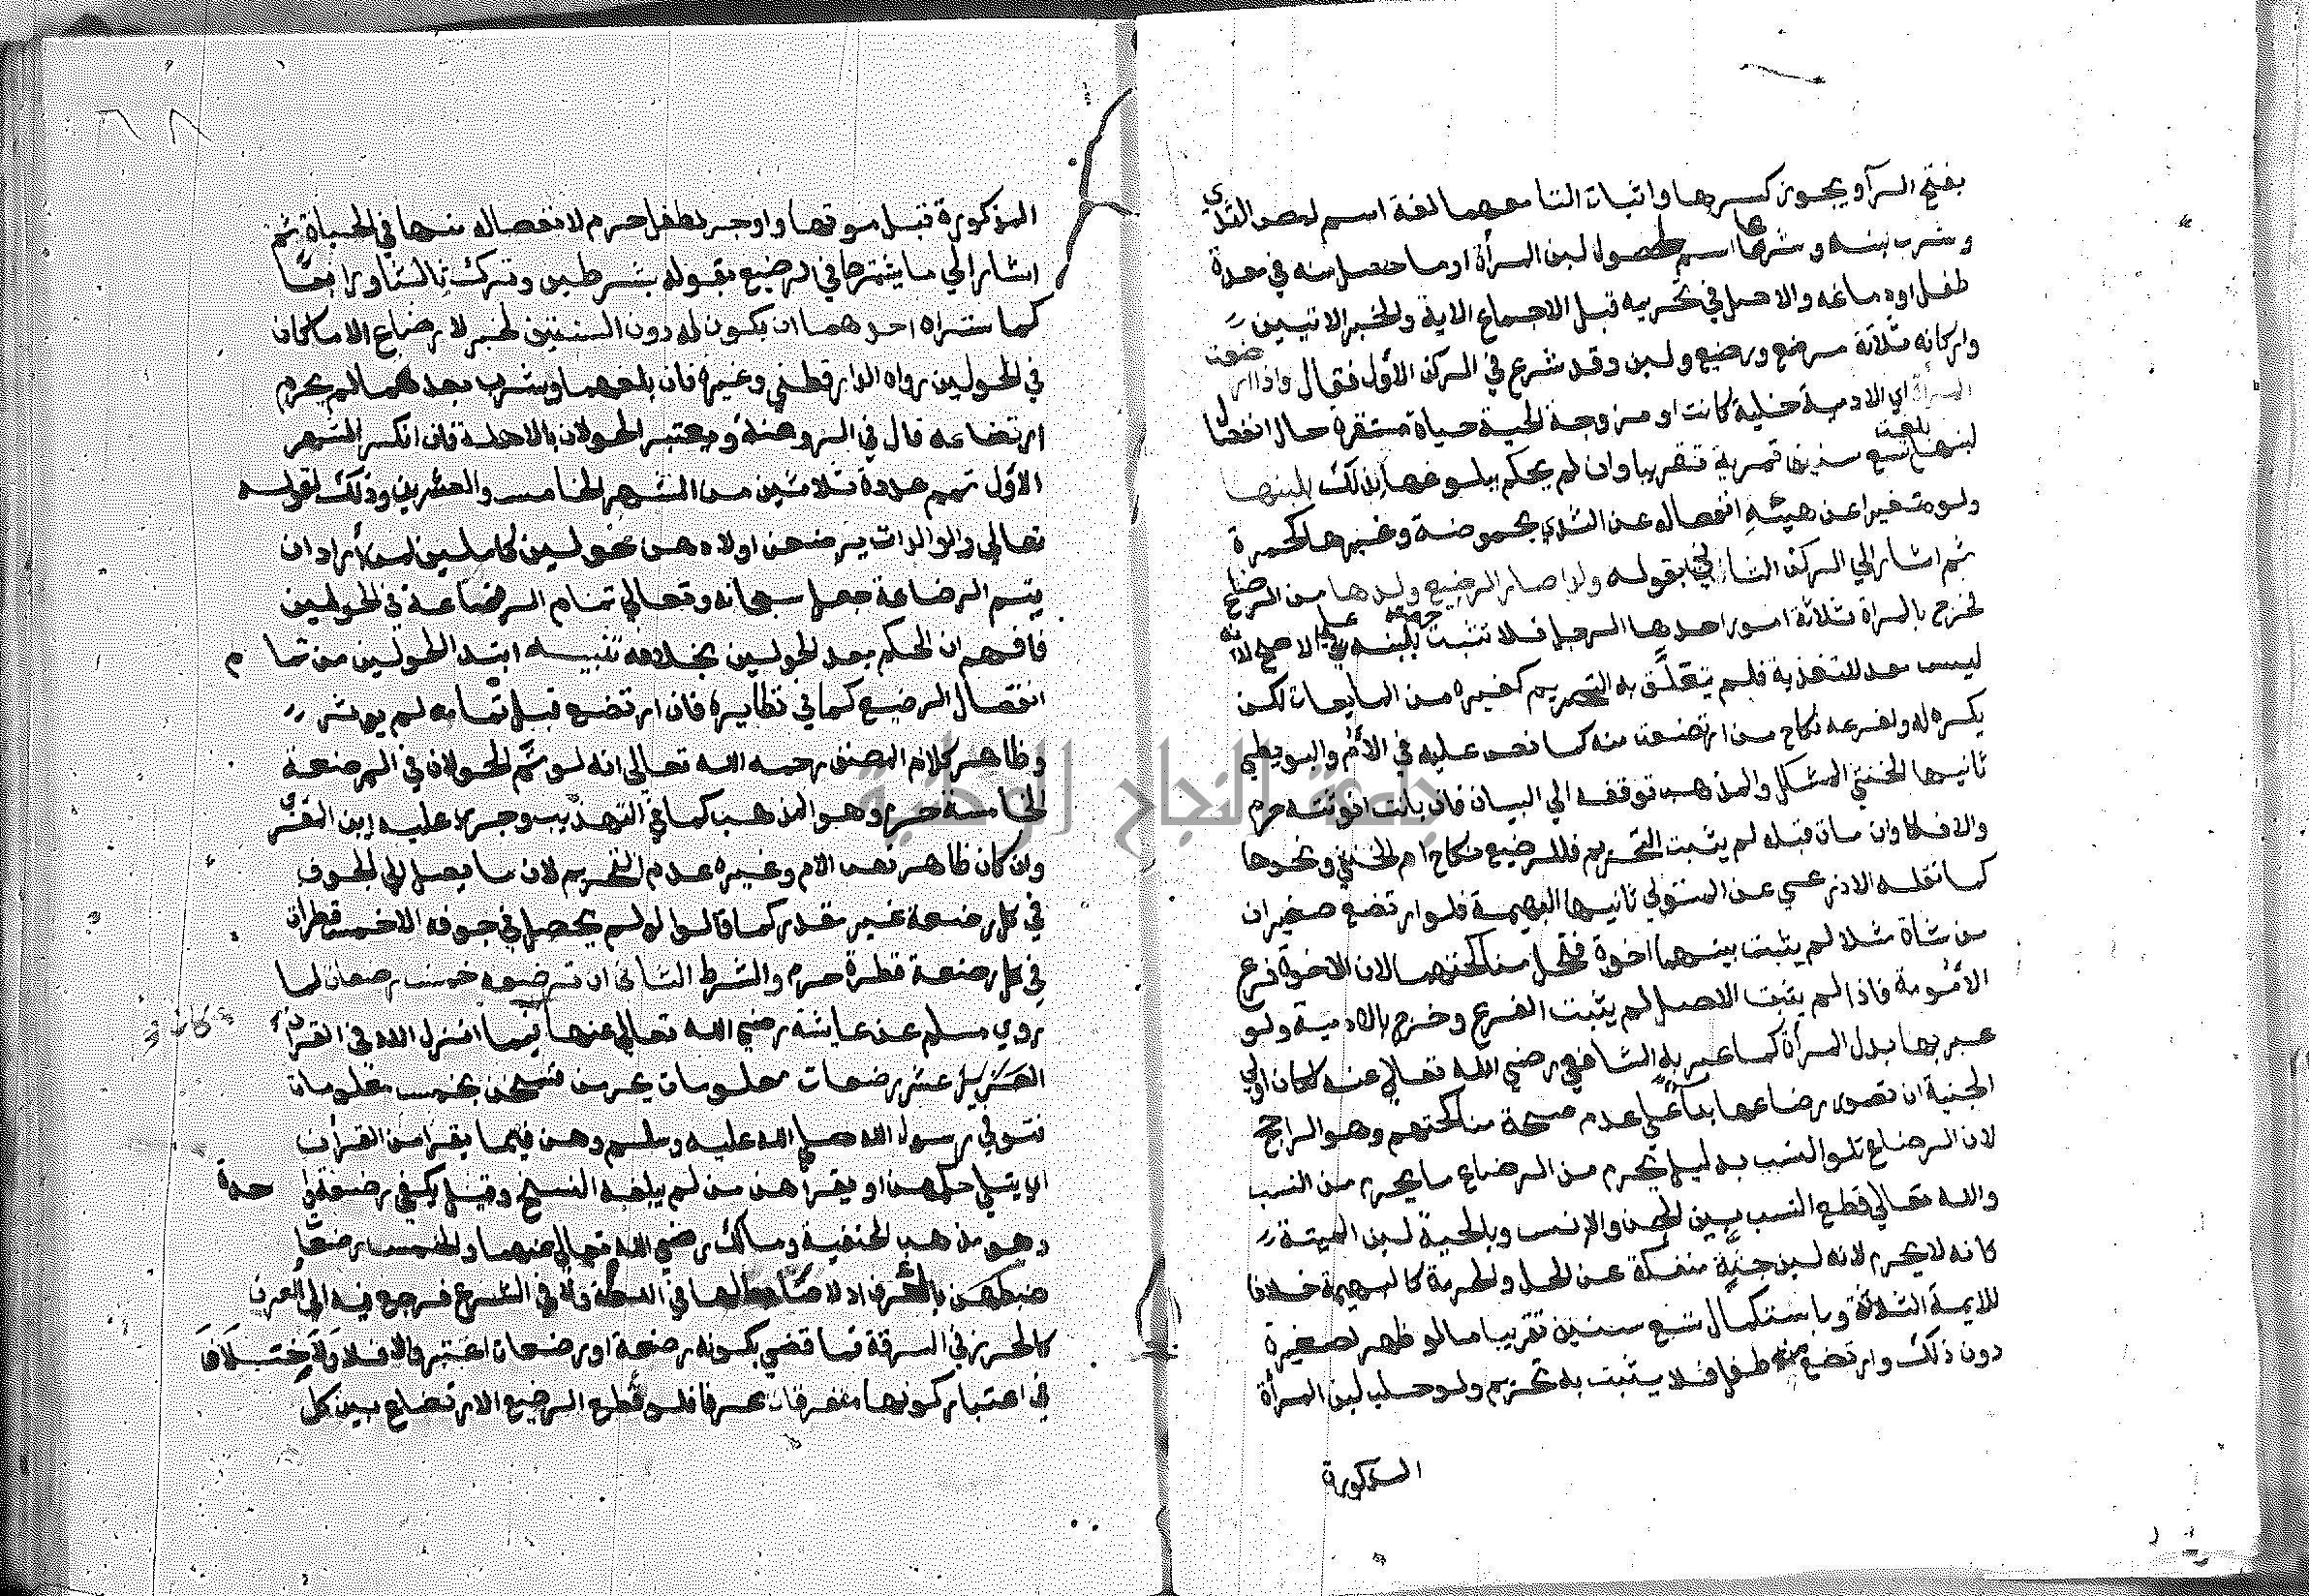 بفتح الرآ ويجوز كسرها واثبات التا معهما لغة اسم لمص الثدي
وشرب لبنه وشرعا اسم لحصول لبن امرأة او ما حصل منه في معدة
طفل او دماغه والاصل في تحريمه قبل الاجماع الاية والخبر الاتيين
واركانه ثلاثة مرضع ورضيع ولبن وقد شرع في الركن الأول فقال واذا ارضعت
المرأة اي الادمية خلية كانت او مزوجة الحية حياة مستقرة حال انفصال
لبنها بلغت تسع سنين قمرية تقريبا وان لم يحكم ببلوغها بذلك بلبنها
ولو متغيرا عن هيئة انفصاله عن الثدي بحموضة وغيرها كحمرة
ثم اشار الي الركن الثاني بقوله ولدا صار الرضيع ولدها من الرضاع
فخرج بالمرأة ثلاثة امور احدها الرجل فلا تثبت حرمة بلبنه علي الاصح لانه
ليس معد للتغذية فلم يتعلق به التحريم كغيره من المايعات لكن
يكره له ولفرعه نكاح من ارتضعت منه كما نص عليه في الأم والبويطي
ثانيها الخنثي المشكل والمذهب توقفه الي البيان فان بانت انوثته حرم
والا فلا وان مات قبله لم يثبت التحريم فللرضيع نكاح ام الخنثي ونحوها
كما نقله الاذرعي عن المتولي ثانيها البهيمة فلو ارتضع صغيران
من شاة مثلا لم يثبت بينهما اخوة فتحل مناكحتهما لان الاخوة فرع
الأمومة فاذا لم يثبت الاصل لم يثبت الفرع وخرج بالادمية ولو
عبر بها بدل المرأة كما عبر به الشافعي رضي الله تعالي عنه لكان اولي
الجنية ان تصور رضاعها بنآء علي عدم صحة مناكحتهم وهو الراجح
لان الرضاع تلو النسب بدليل يحرم من الرضاع ما يحرم من النسب
والله تعالي قطع النسب بين الجن والإنس وبالحية لبن الميتة
فانه لا يحرم لانه لبن جثة منفكة عن الحل والحرمة كالبهيمة خلافا
للايمة الثلاثة وباستكمال تسع سنين تقريبا ما لو ظهر لصغيرة
دون ذلك وارتضع منه طفل فلا يثبت به تحريم ولو حلب لبن المرأة
المذكورة
المذكورة قبل موتها واوجر لطفل حرم لانفصاله منها في الحياة ثم
اشار الي ما يشترط في الرضيع بقوله بشرطين وترك ثالثا ورابعا
كما ستراه احدهما ان يكون له دون السنتين لخبر لا رضاع الا ما كان
في الحولين رواه الدارقطني وغيره فان بلغهما وشرب بعدهما لم يحرم
ارتضاعه قال في الروضة ويعتبر الحولان بالاهلة فان انكسر الشهر
الأول تمم عدده ثلاثين من الشهر الخامس والعشرين وذلك لقوله
تعالي والوالدات يرضعن اولادهن حولين كاملين لمن أراد ان
يتم الرضاعة جعل سبحانه وتعالي تمام الرضاعة في الحولين
فافهم ان الحكم بعد الحولين بخلافه تنبيه ابتدا الحولين من تمام
انفصال الرضيع كما في نظايره فان ارتضع قبل تمامه لم يوثر
وظاهر كلام المصنف رحمه الله تعالي انه لو تم الحولان في الرضعة
الخامسة حرم وهو المذهب كما في التهذيب وجري عليه ابن المقري
وان كان ظاهر نص الام وغيره عدم التحريم لان ما يصل الي الجوف
في كل رضعة غير مقدر كما قالوا لو لم يحصل في جوفه الا خمس قطرات
في كل رضعة قطرة حرم والشرط الثاني ان ترضعه خمس رضعات لما
روي مسلم عن عايشة رضي الله تعالي عنها كان فيما انزل الله في القرآن
العزيز عشر رضعات معلومات يحرمن فنسخن بخمس معلومات
فتوفي رسول الله صلي الله عليه وسلم وهن فيما يقرا من القرآن
اي يتلي حكمهن او يقرأهن من لم يبلغه النسخ وقيل يكفي رضعة واحدة
وهو مذهب الحنفية ومالك رضي الله تعالي عنهما والخمس رضعات
ضبطهن بالعرف اذ لا ضابط لها في اللغة ولا في الشرع فرجع فيه الي العرف
كالحرز في السرقة فما قضي بكونه رضعة او رضعات اعتبر والا فلا ولا خلاف
في اعتبار كونها متفرقات عرفا فلو قطع الرضيع الارتضاع بين كل
جامعة النجاح الوطنية